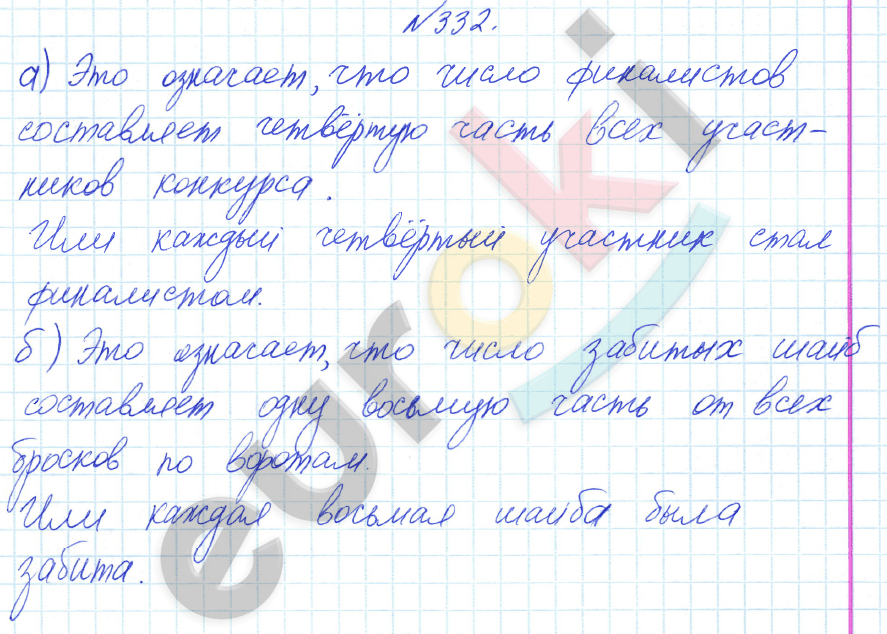 №332.
а) Это означает, что число финалистов
составляет четвёртую часть всех участ-
ников конкурса.
Или каждый четвёртый участник стал
финалистом.
б) Это означает, что число забитых шайб
составляет одну восьмую часть от всех
бросков по воротам.
Или каждая восьмая шайба была
забита.
euroki